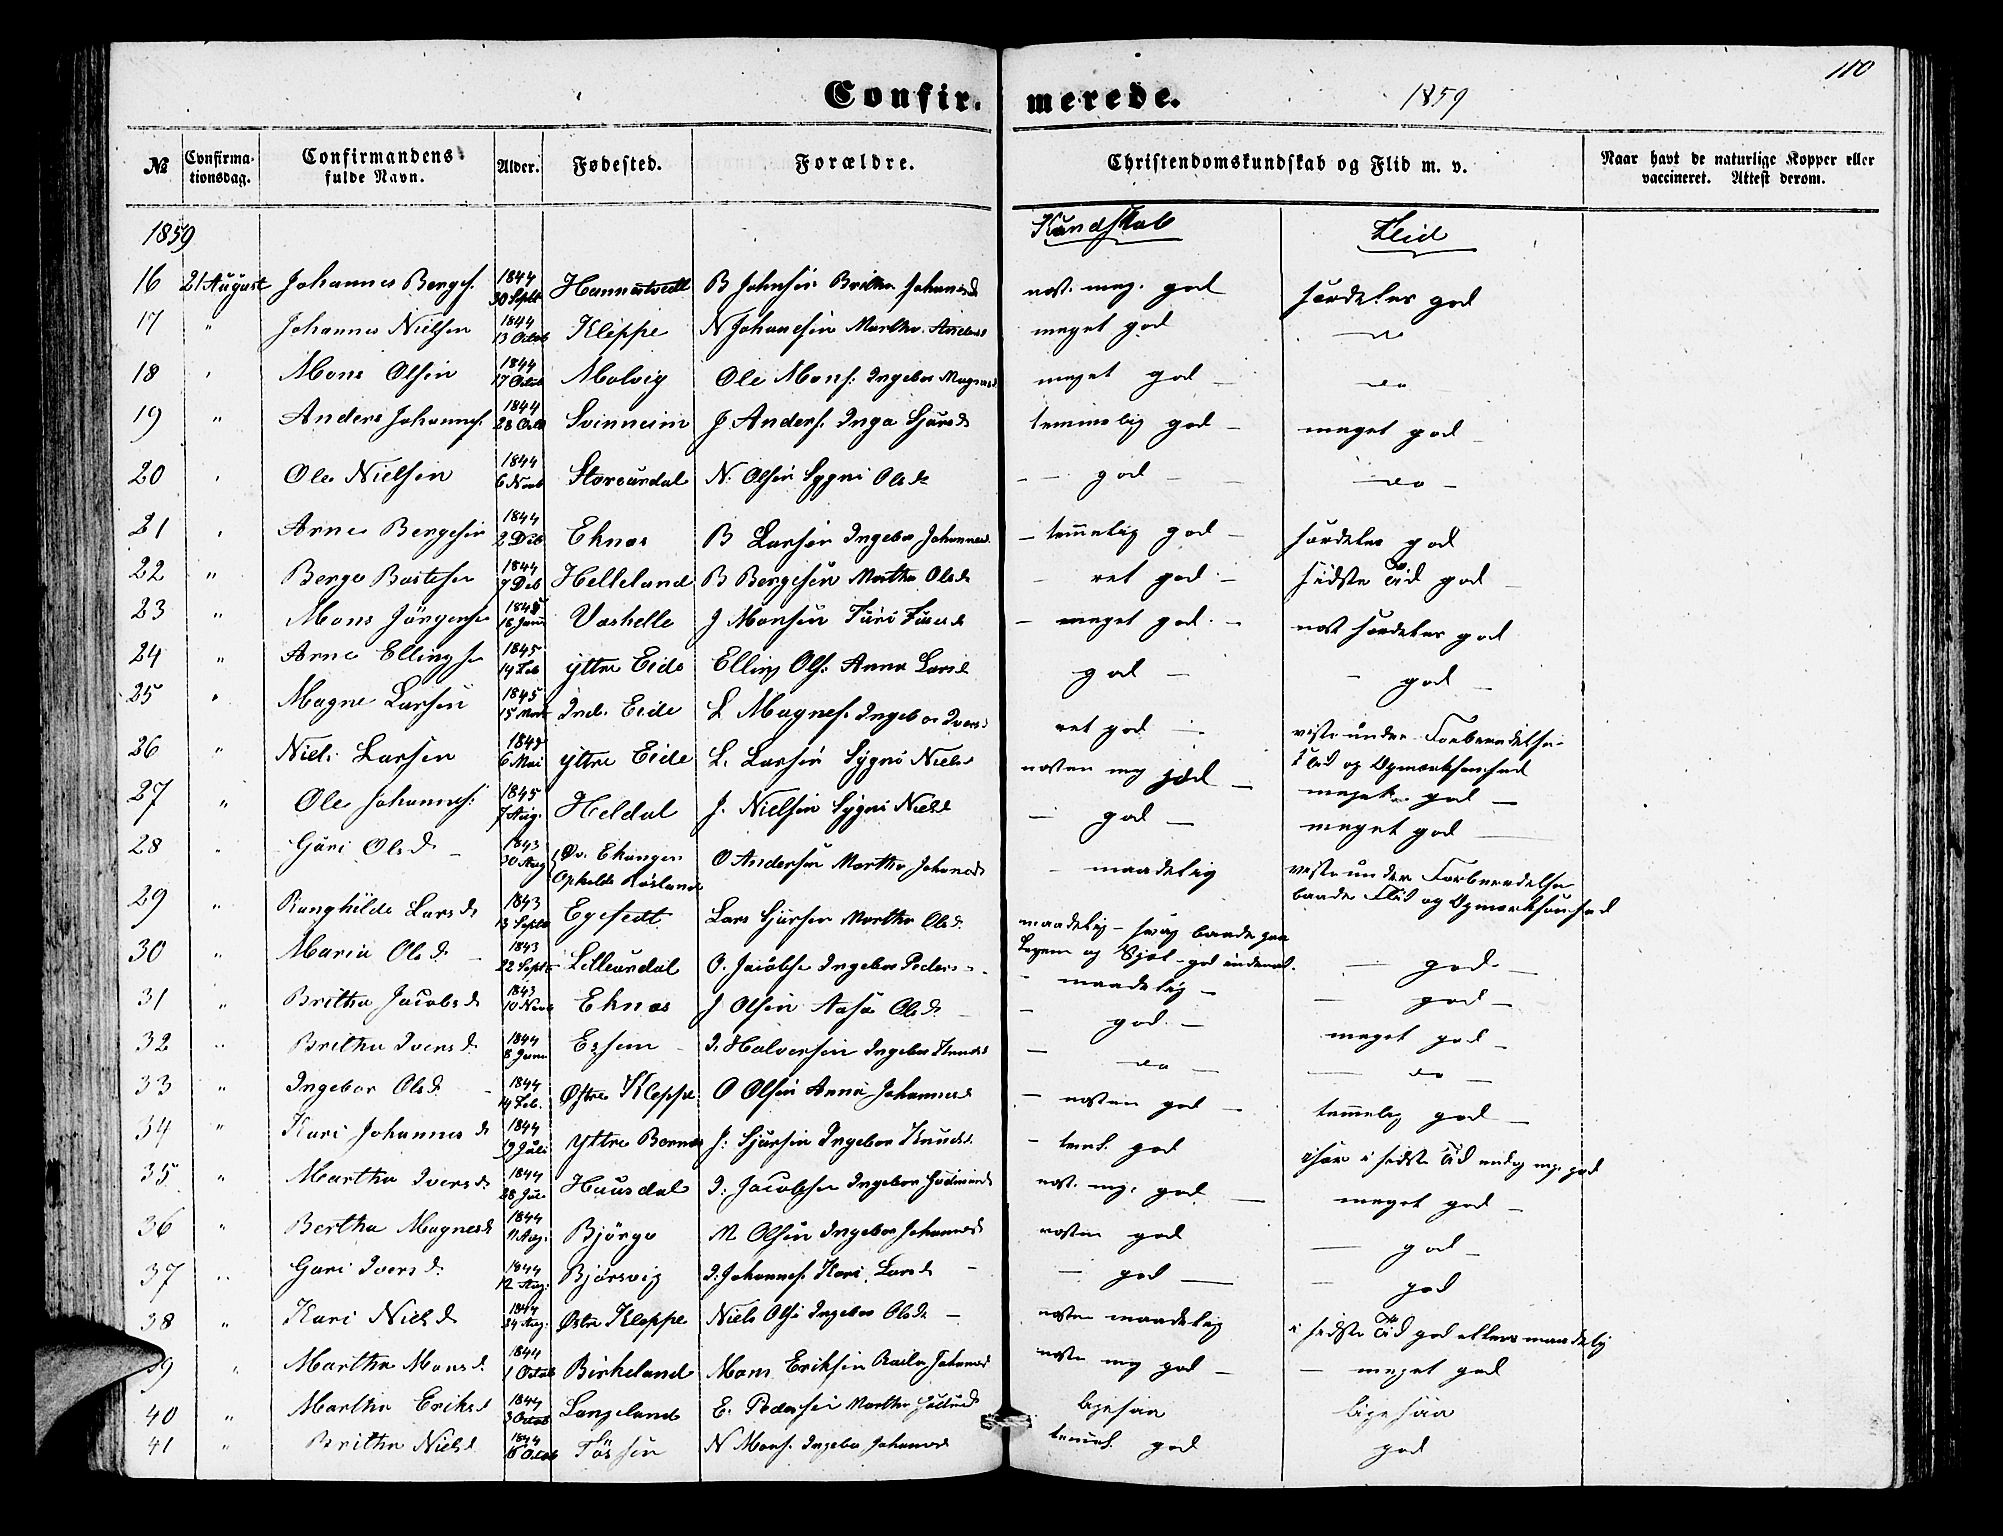 110
Confir. merede. 1859
№ Confirma- tionsdag. Confirmandens fulde Navn. Alder. Fødested. Forældre. Christendomskundskab og Flid m. v. Naar havt de naturlige Kopper eller vaccineret. Attest derom.
1859 Kundskab Flid
16 21 August Johannes Bergesf. 1844 30 Septb B Johnsen Britha Johannesd næst. meg. god særdeles god
17 " Johannes Nielsen 1844 13 Octob Kleppe N Johansen Martha Andersd meget god do
18 " Mons Olsen 1844 17 Octob Molvig Ole Mons: Ingebor Magnesd meget god do
19 " Anders Johannesf. 1844 28 Octb Svinneim J Andersf. Inga Sjursd temmelig god meget god
20 " Ole Nielsen 1844 6 Novb Storeurdal N. Olsen Sygni Olsd god do
21 " Arne Bergesen 1844 2 Deb Eknes B Larsen Ingebor Johannesd. temelig god særdeles god
22 " Berge 1844 7 Deb Helleland B Bergesen Martha Olsd ret god sidste Tid god
23 " Mons Jørgensen 1845 16 Janu Vashelle J Monsen meget god næst særdeles god
24 " Arne Ellingsen 1845 14 Feb yttre Eide Elling Ols: Anna Larsd god god
25 " Magne Larsen 1845 15 Marts Ind. Eide L Magnesf. Ingebor Iversd ret god viste under Forberedelsen Flid og Opmærksomhed
26 " Niels Larsen 1845 6 Mai yttre Eide L. Larsen Sygni Nielsd næsten meg god meget god
27 " Ole Johannesf: 1845 7 Aug. Heldal J. Nielsen Sygni Nielsd god meget god
28 " Guri Olsd 1843 30 Aug Øv. Ekanger Opholds O Andersen Martha Johannesd maadelig viste under Forberedelsen baade Flid og Opmærksomhed
29 " Ranghilde Larsd 1843 13 Septb Lars Sjursen Martha Olsd. maadelig – svag baade paa Legem og Sjæl
30 " Maria Olsd 1843 22 Septb Lilleurdal O. Jacobsen Ingebor Peders maadelig god
31 " Britha Jacobsd 1843 10 Novb Eknes J Olsen Aasa Olsd god god
32 " Britha Iversd 1844 8 Janu I. Halversen Ingebor Knudsd do meget god
33 " Ingebor Olsd 1844 14 Feb. Østre Kleppe O Olsen Anna Johannesd næsten god do
34 " Kari Johannesd 1844 9 Juli Yttre Bernes J: Sjursen Ingebor Knudsd teml. god temelig god
35 " Martha Iversd 1844 28 Jul Huusdal I: Jacobsen Ingebor næst. meg. god især i sidste Tid god
36 " Bertha Magnesd 1844 11 Aug. Bjørge M Olsen Ingebor Johannesd næsten god meget god
37 " Guri Iversd. 1844 12 Aug. Bjørsvig I. Johannesf. Kari Larsd god god
38 " Kari Nielsd 1844 24 Aug. Østre Kleppe Niels Olsen Ingebor Olsd næsten maadelig god
39 " Martha Monsd. 1844 1 Octob Birkeland Mons Eriksen Johannesd næsten meg god i sidste Tid god ellers maadelig
40 " Martha Eriksd 1844 3 Octob Langeland E. Pedersen Martha ligesaa meget god
41 " Britha Nielsd 1844 Octob N Monsf. Ingebor Johannesd temml. god ligesaa
god